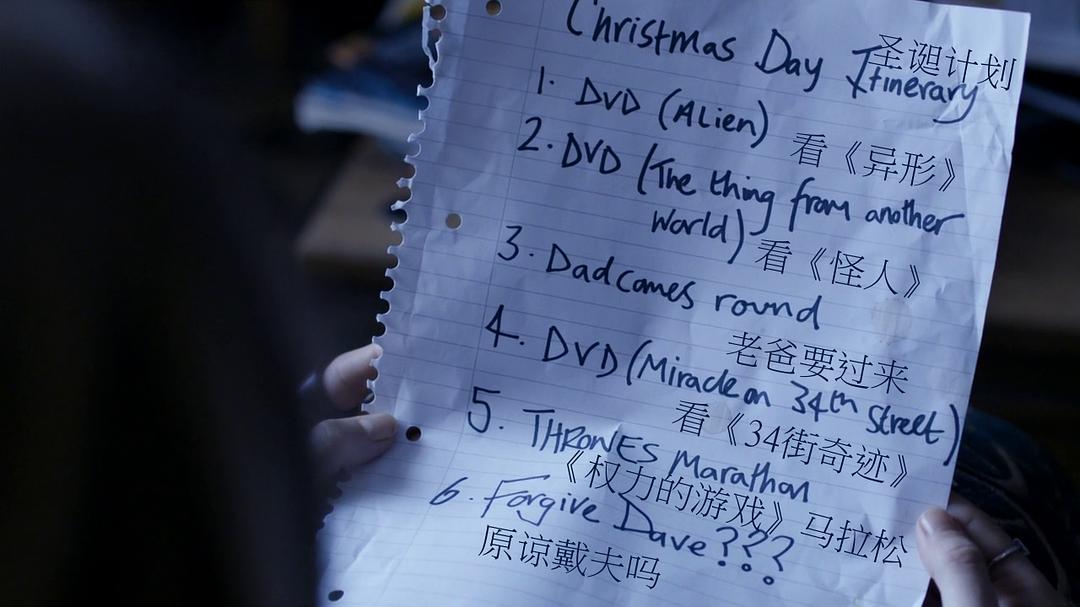 Christmas Day Itinerary
圣诞计划
1. DVD (Alien)
看《异形》
2. DVD (The thing from another
world)
看《怪人》
3. Dad comes round
老爸要过来
4. DVD (Miracle on 34th Street)
看《34街奇迹》
5. THRONES Marathon
《权力的游戏》马拉松
6. Forgive Dave???
原谅戴夫吗